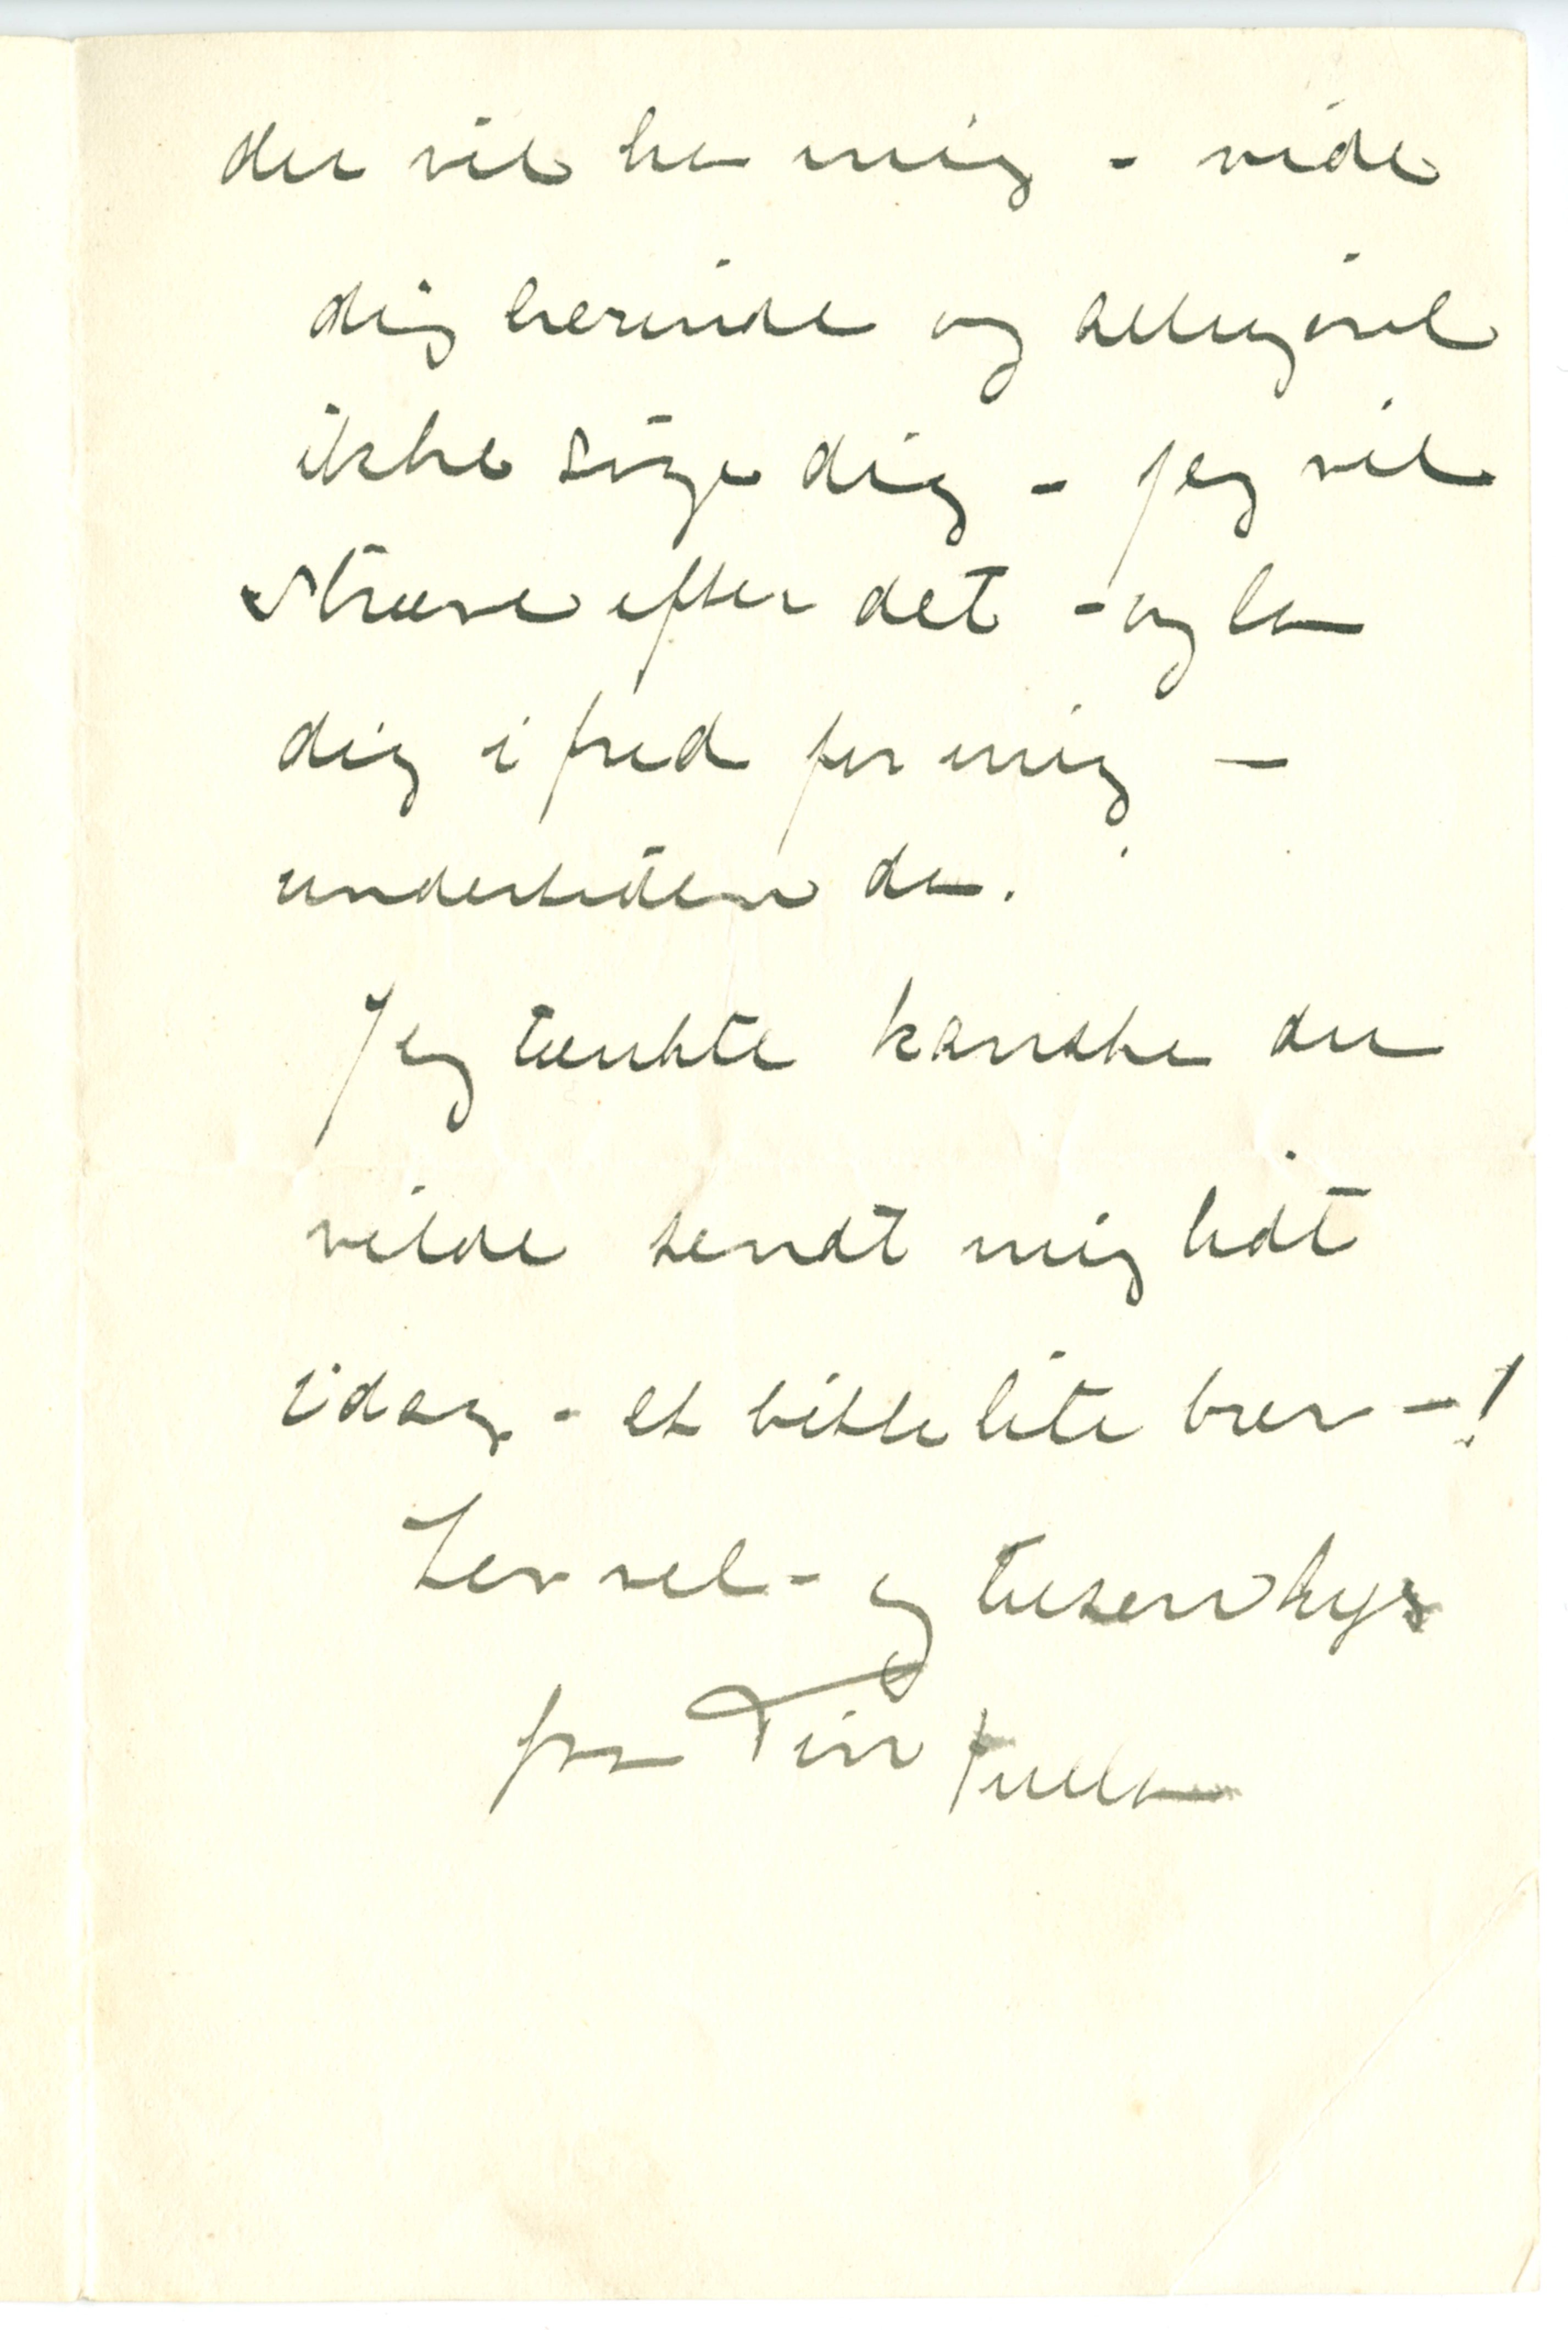 du vil ha mig - vide
dig herinde og alligevel
ikke søge dig - jeg vil
stræve efter det - og la
dig i fred for mig -
undertiden da.
Jeg tænkte kanske du
vilde sendt mig lidt
idag - et bitte lite brev -!
Lev vel - og tusen kys
fra Din Tulla